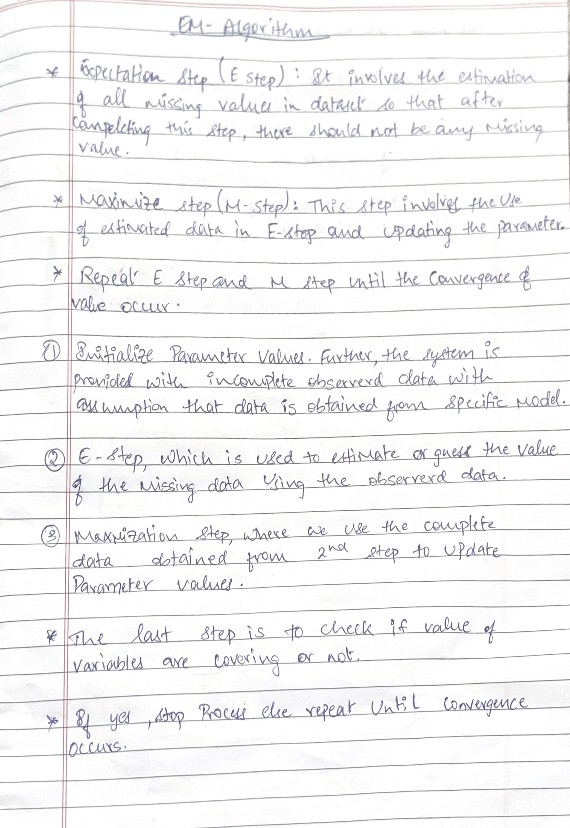 EM- Algorithm
* Expectation step (E step) : It involves the estimation
of all missing values in dataset so that after
Compelcting this step, there should not be any missing
value.
* Maximize step (M-step): This step involves the Use
of estimated data in E-step and updating the parameter.
* Repeat E step and M step until the Convergence of
value occur.
① Initialize Parameter Values. Further, the system is
provided with incomplete observerd data with
assumption that data is obtained from specific Model.
② E-step, which is used to estimate or guess the value
of the Missing data Using the observerd data.
③ Maxmization step, where we use the complete
data obtained from 2nd step to update
Parameter values.
* The last step is to check if value of
variables are covering or not.
* If yes, stop Process else repeat Until convergence
occurs.